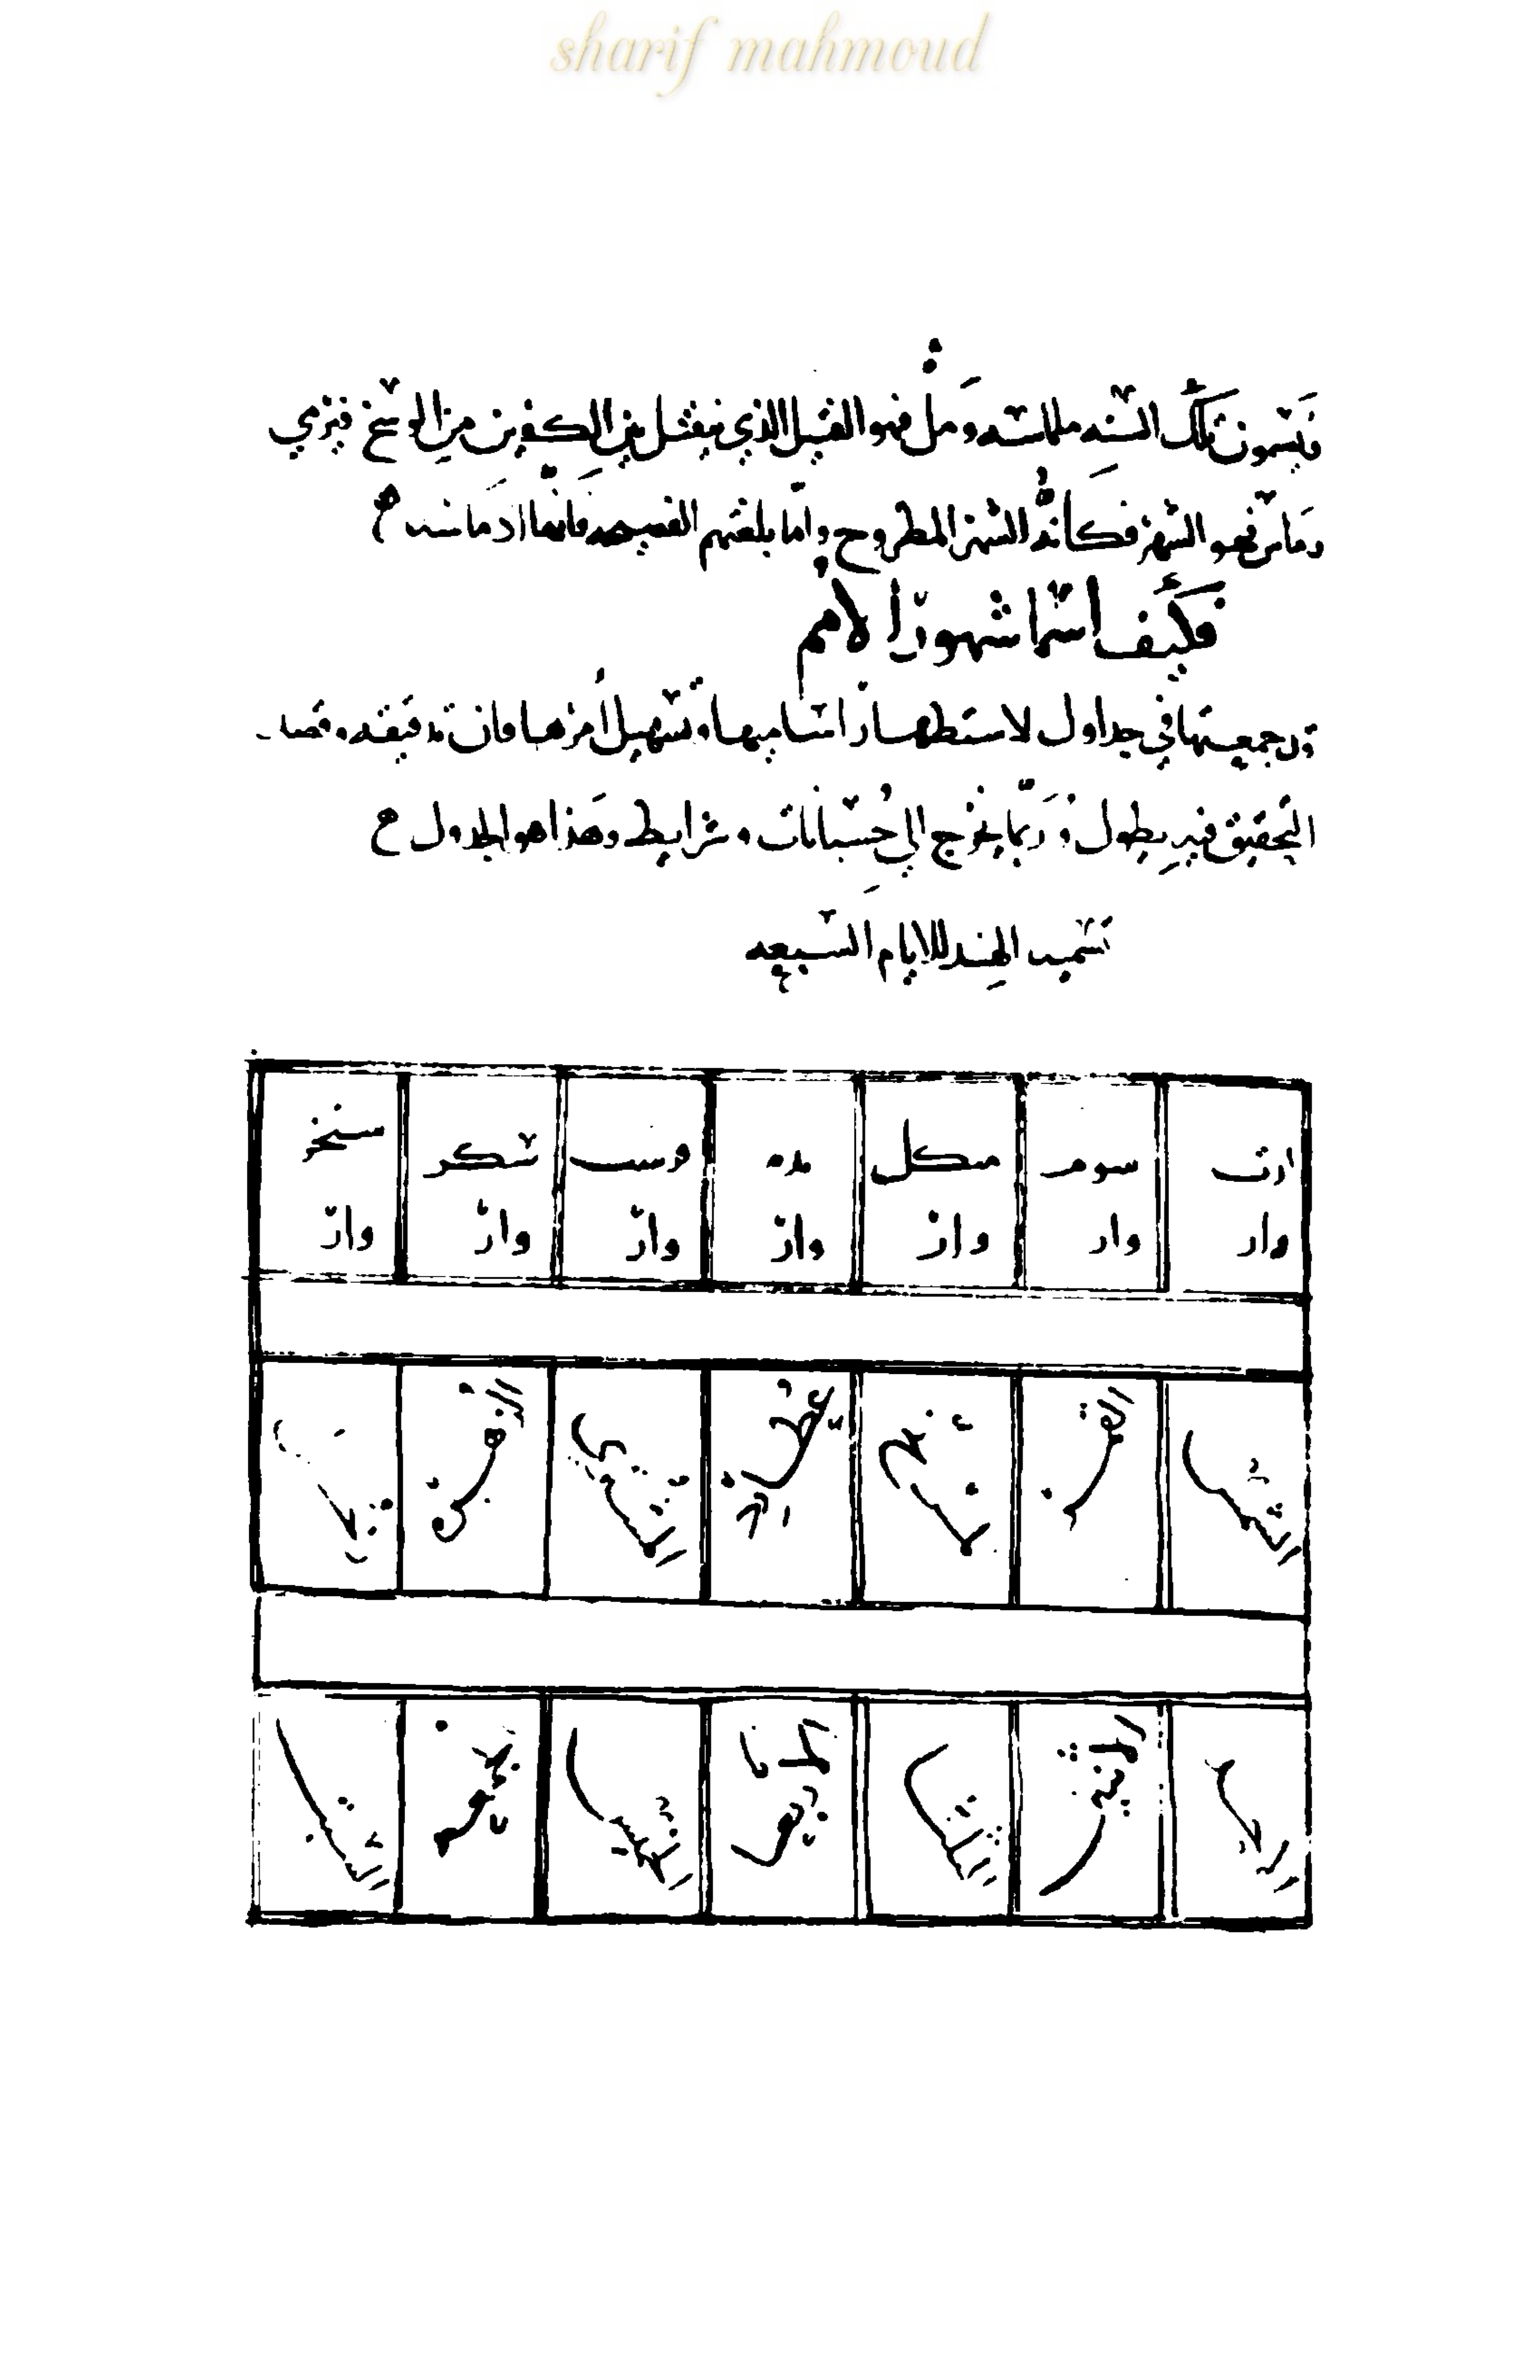 sharif mahmoud
ويسمون تلك السنه ملماسه ومل فهو الفتيل الذي ينفتل بين الكفين من الوسخ فيرمي
وماس فهو الشهر فكأنه الشهر المطروح واما بلغتهم الفصيحه فانها ادماسه
فكيف اسما شهور الامم
قد جمعتها في جداول لاستظهار اساميها وتسهيل أمرها فان تدقيقه وقصد
التحقيق فيه يطول وربما يخرج الي حسبانات وشرايط وهذا هو الجدول
تسميه الهند للايام السبعه
ادت وار سوم وار منكل وار بده وار وار شكر وار سنخر وار
الشمس القمر المريخ عطارد المشتري الزهره زحل
الاحد الاثنين الثلثا الاربعا الخميس الجمعه السبت